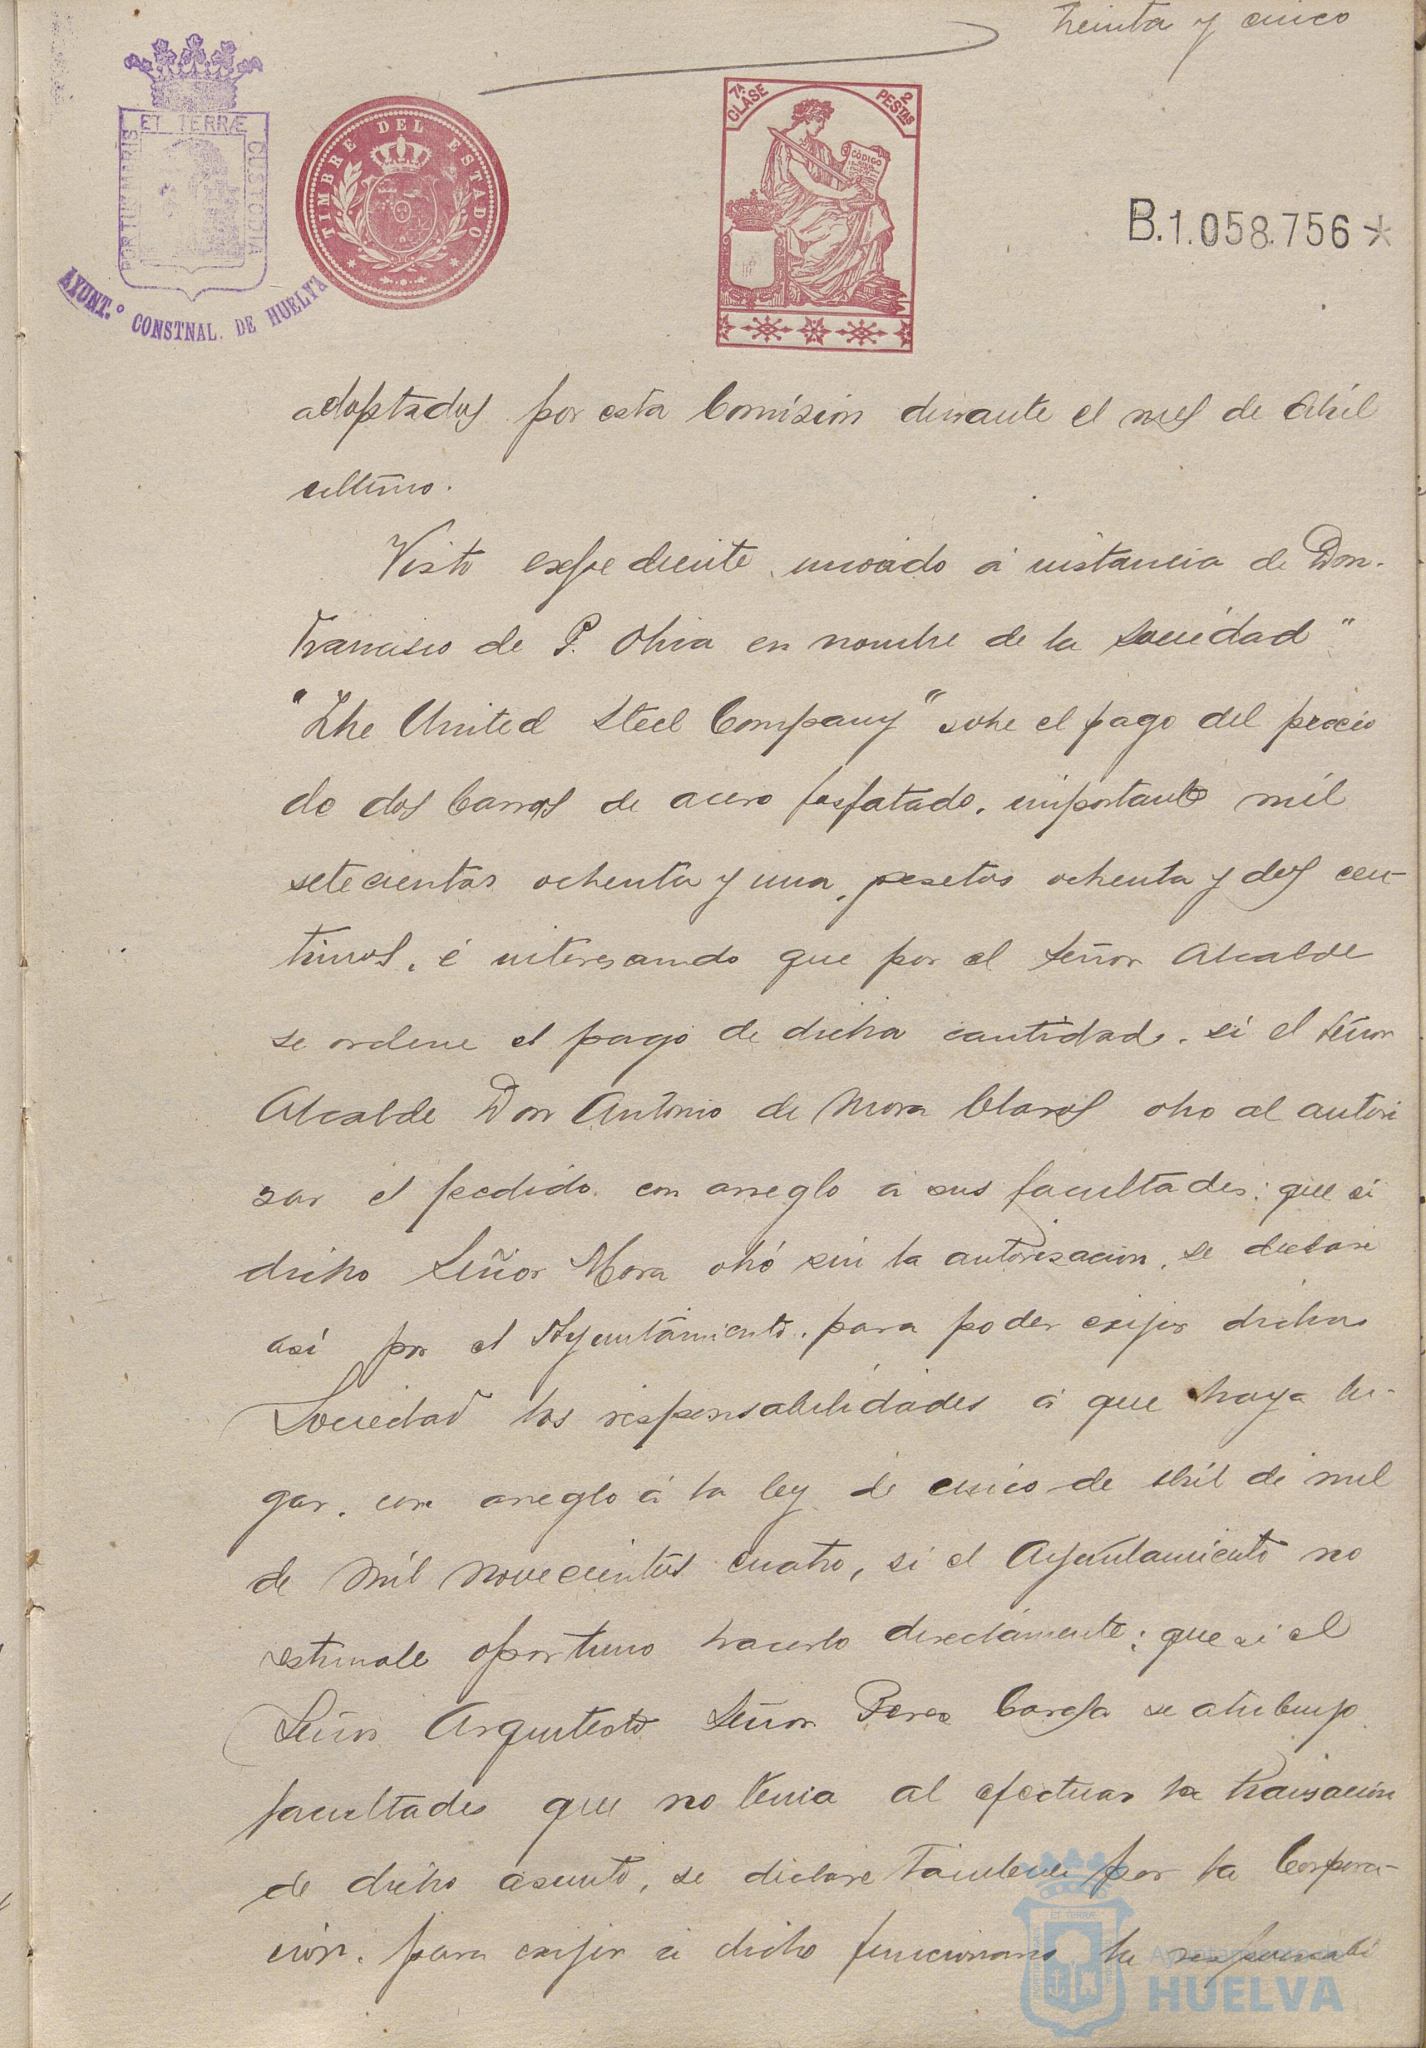 treinta y cinco
ET TERRÆ
PORTUS MARIS
CUSTODIA
AYUNT.º CONSTNAL. DE HUELVA
TIMBRE DEL ESTADO
7ª CLASE
2 PESTAS
CÓDIGO
B.1.058.756*
adoptados por esta Comisión durante el mes de Abril
ultimo.
Visto expediente incoado á instancia de Don
Francisco de P. Oliva en nombre de la sociedad "
"The United Steel Company" sobre el pago del precio
de dos barras de acero fosfatado, importante mil
setecientas ochenta y una, pesetas ochenta y dos cen-
timos, é interesando que por el Señor Alcalde
se ordene el pago de dicha cantidad, si el Señor
Alcalde Don Antonio de Mora Claros obro al autori
zar el pedido con arreglo á sus facultades; que si
dicho Señor Mora obró sin la autorisación, se declare
así por el Ayuntamiento, para poder exijir dicha
Sociedad las responsabilidades á que haya lu-
gar, con arreglo á la ley de cinco de Abril de mil
de mil novecientos cuatro, si el Ayuntamiento no
estimale oportuno hacerlo directamente; que si el
Señor Arquitecto Señor Perez Carasa se atribuyo
facultades que no tenia al efectuar la transación
de dicho asunto, se declare tambien por la Corpora-
ción, para exijir á dicho funcionario la responsabi
ET TERRÆ
Ayuntamiento de
HUELVA